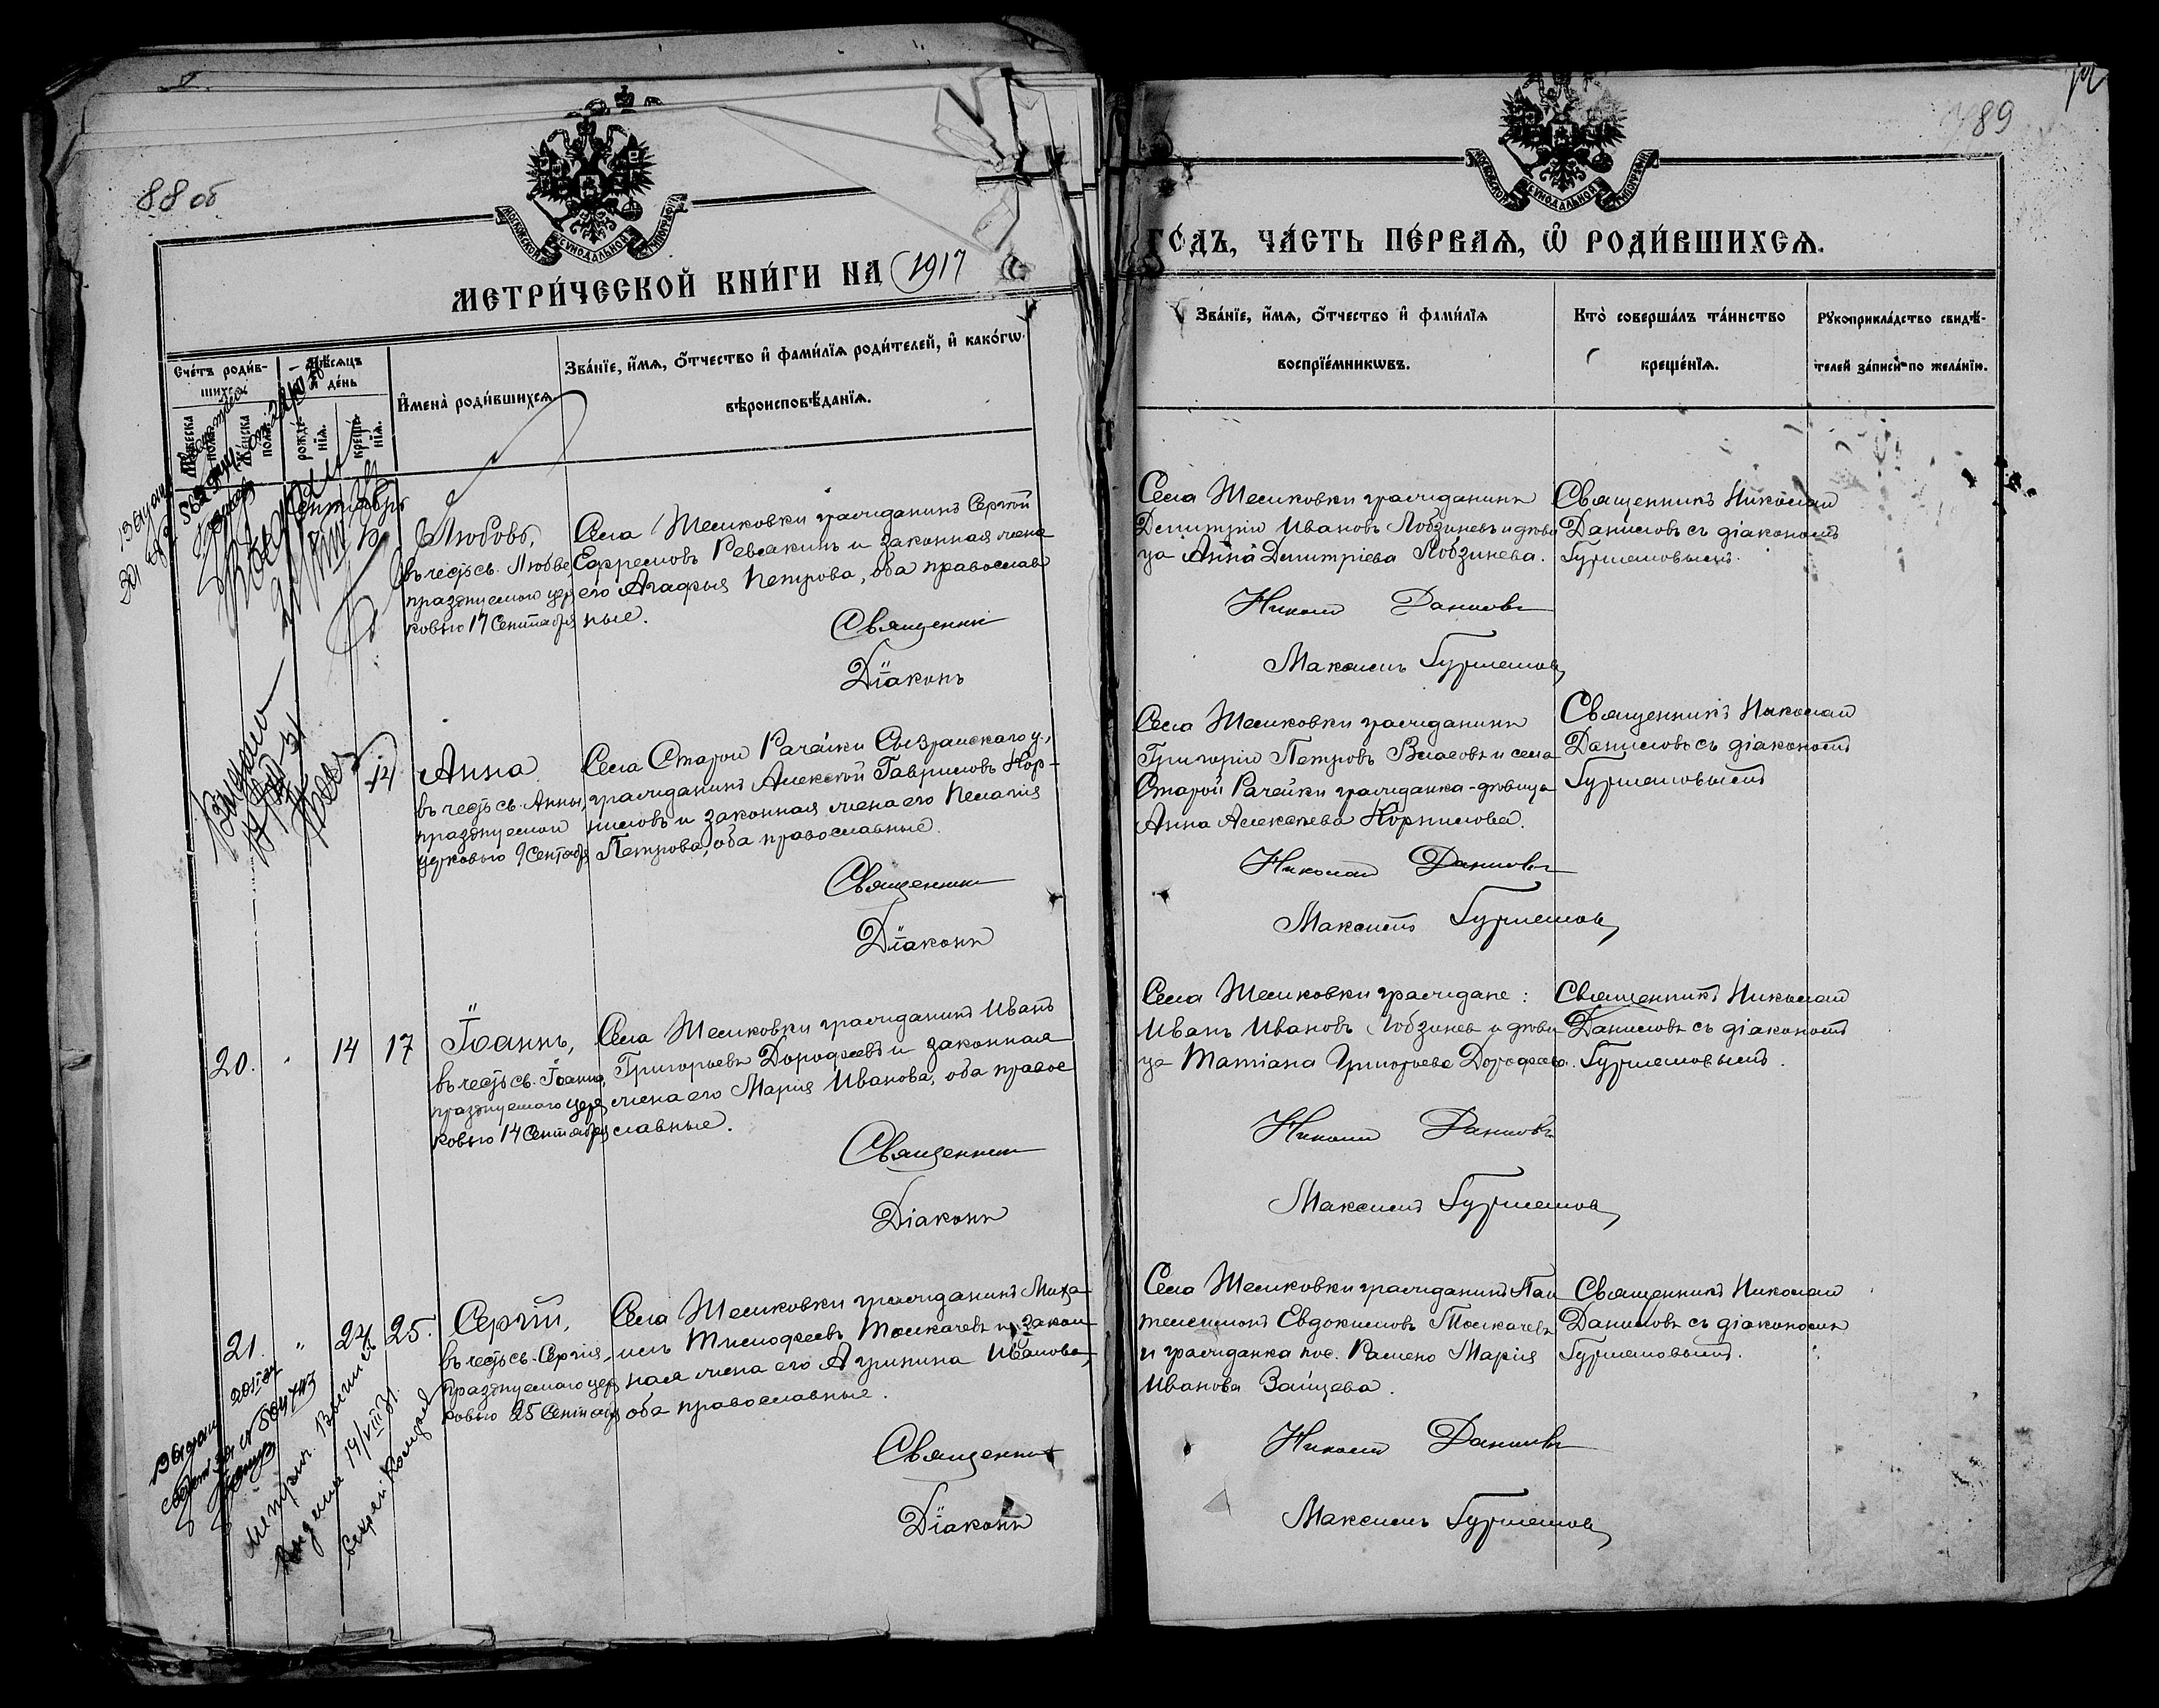 88 об
89
МОСКОВСКОЙ СѴНОДАЛЬНОЙ ТИПОГРАФІИ
МОСКОВСКОЙ СѴНОДАЛЬНОЙ ТИПОГРАФІИ
МЕТРИ́ЧЕСКОЙ КНИ́ГИ НА 1917
ГО́ДЪ, ЧА́СТЬ ПЕ́РВАѦ, Ѿ РОДИ́ВШИХСѦ.
Сче́тъ роди́в-
шихсѧ
Мѣ́сѧцъ
и҆ де́нь
Мꙋ́жеска
по́ла.
Же́нска
по́ла.
рожде́-
нїѧ.
креще́-
нїѧ.
И҆мена̀ роди́вшихсѧ
Зва́нїе, и҆́мѧ, ѻ҆́тчество и҆ фами́лїѧ роди́телей, и҆ како́гѡ
вѣроисповѣ́данїѧ.
Зва́нїе, и҆́мѧ, ѻ҆́тчество и҆ фами́лїѧ
воспрїе́мникѡвъ.
Кто̀ соверша́лъ та́инство
креще́нїѧ.
Рꙋкоприкла́дство свидѣ́-
телей за́писи по жела́нїю.
Сентябрь
Любовь,
въ честь св. Любве,
празднуемой цер
ковью 17 Сентября
Села Шемиковки гражданинъ Сергій
Ефремовъ Ревякинъ и законная жена
его Агафья Петрова, оба православ
ные.
Священник
Діаконъ
Села Шемиковки гражданинъ
Димитрій Ивановъ Лобзиневъ и дѣви
ца Анна Димитріева Лобзинева.
Николай Данилов
Максимъ Гуржемов
Священникъ Николай
Даниловъ съ діакономъ
Гуржемовымъ.
14
Анна
въ честь св. Анны,
празднуемой
церковью 9 Сентября
Села Старой Рачейки Сызранскаго у.,
гражданинъ Алексей Гавриловъ Кор-
ниловъ и законная жена его Пелагия
Петрова, оба православные.
Священник
Діаконъ
Села Шемиковки гражданинъ
Григорій Петровъ Власовъ и села
Старой Рачейки гражданка-дѣвица
Анна Алексѣева Корнилова.
Николай Данилов
Максимъ Гуржемов
Священникъ Николай
Даниловъ съ діакономъ
Гуржемовымъ
20.
14
17
Іоаннъ,
въ честь св. Іоанна,
празднуемаго цер
ковью 14 Сентября
Села Шемиковки гражданинъ Иванъ
Григорьевъ Дорофеевъ и законная
жена его Мария Иванова, оба право
славные.
Священник
Діаконъ
Села Шемиковки граждане:
Иванъ Ивановъ Лобзинев и дѣви
ца Татіана Григорьева Дорофеева.
Николай Данилов
Максимъ Гуржемов
Священникъ Николай
Даниловъ съ діакономъ
Гуржемовымъ.
21.
"
24
25.
Сергій,
въ честь св. Сергія,
празднуемаго цер
ковью 25 Сентября
Села Шемиковки гражданинъ Миха
илъ Тимофеевъ Толкачевъ и закон
ная жена его Агрипина Иванова,
оба православные.
Священник
Діаконъ
Села Шемиковки гражданинъ Пан
телеимонъ Евдокимовъ Толкачевъ
и гражданка пос. Рамено Марія
Иванова Зайцева.
Николай Данилов
Максимъ Гуржемов
Священникъ Николай
Даниловъ съ діакономъ
Гуржемовымъ.
Метрич. Выпись
Выдана 19/VIII 31.